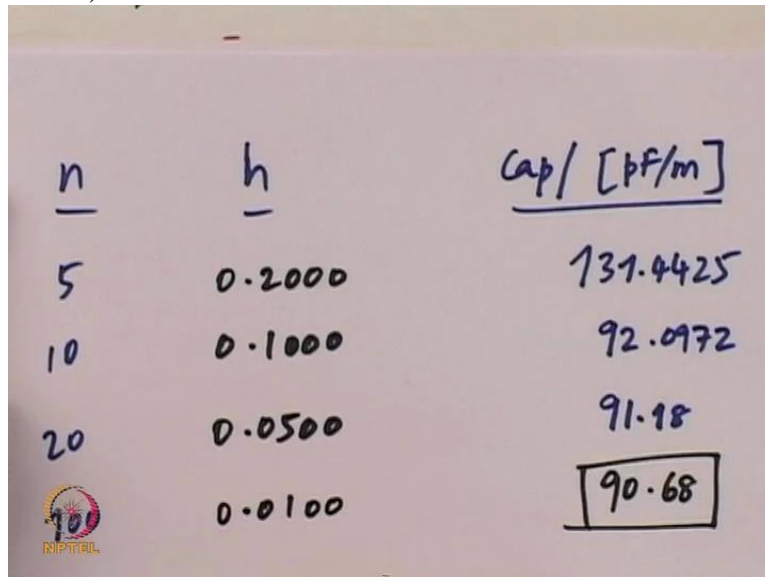 n h Cap/ [pF/m]
5 0.2000 131.4425
10 0.1000 92.0972
20 0.0500 91.18
100 0.0100 90.68
NPTEL